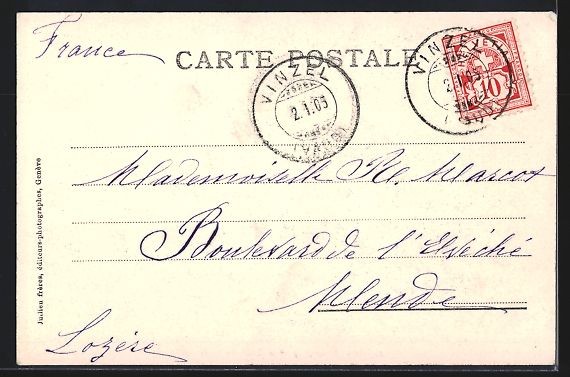 France
CARTE POSTALE
VINZEL
2.1.05
(VAUD)
VINZEL
2.1.05
(VAUD)
HELVETIA
10
Mademoiselle R. Marcot
Boulevard de l'Evêché
Mende
Lozère
Jullien frères, éditeurs-photographes, Genève